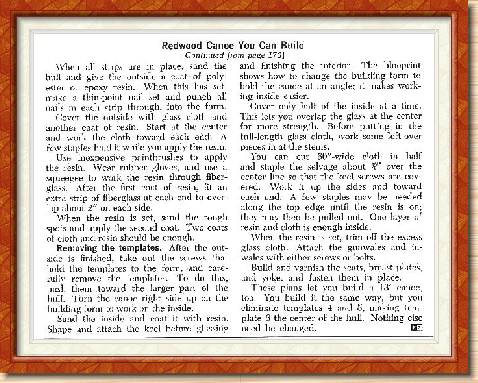 Redwood Canoe You Can Build
[Continued from page 173]
When all strips are in place, sand the
hull and give the outside a coat of poly-
ester or epoxy resin. When this has set
make a thin-point nail set and punch all
nails in each strip through, into the form.
Cover the outside with glass cloth and
another coat of resin. Start at the center
and work the cloth toward each end. A
few staples hold it while you apply the resin.
Use inexpensive paintbrushes to apply
the resin. Wear rubber gloves, and use a
squeegee to work the resin through fiber-
glass. After the first coat of resin, fit an
extra strip of fiberglass at each end to over-
lap about 2" on each side.
When the resin is set, sand the rough
spots and apply the second coat. Two coats
of cloth and resin should be enough.
Removing the templates. After the out-
side is finished, take out the screws that
hold the templates to the form, and care-
fully remove the templates. To do this,
pull them toward the larger part of the
hull. Turn the canoe right side up on the
building form to work on the inside.
Sand the inside and coat it with resin.
Shape and attach the keel before glassing
and finishing the interior. The blueprint
shows how to change the building form to
hold the canoe at an angle; it makes work-
ing inside easier.
Cover only half of the inside at a time.
This lets you overlap the glass at the center
for more strength. Before putting in the
full-length glass cloth, work some left-over
pieces in at the stems.
You can cut 50"-wide cloth in half
and staple the selvage about over the
center line so that the keel screws are cov-
ered. Work it up the sides and toward
each end. A few staples may be needed
along the top edge until the resin is on;
they may then be pulled out. One layer of
resin and cloth is enough inside.
When the resin is set, trim off the excess
glass cloth. Attach the gunwales and in-
wales with either screws or bolts.
Build and varnish the seats, breast plates,
and yoke, and fasten them in place.
These plans let you build a 13' canoe,
too. You build it the same way, but you
eliminate templates 4 and 5, making tem-
plate 3 the center of the hull. Nothing else
need be changed.